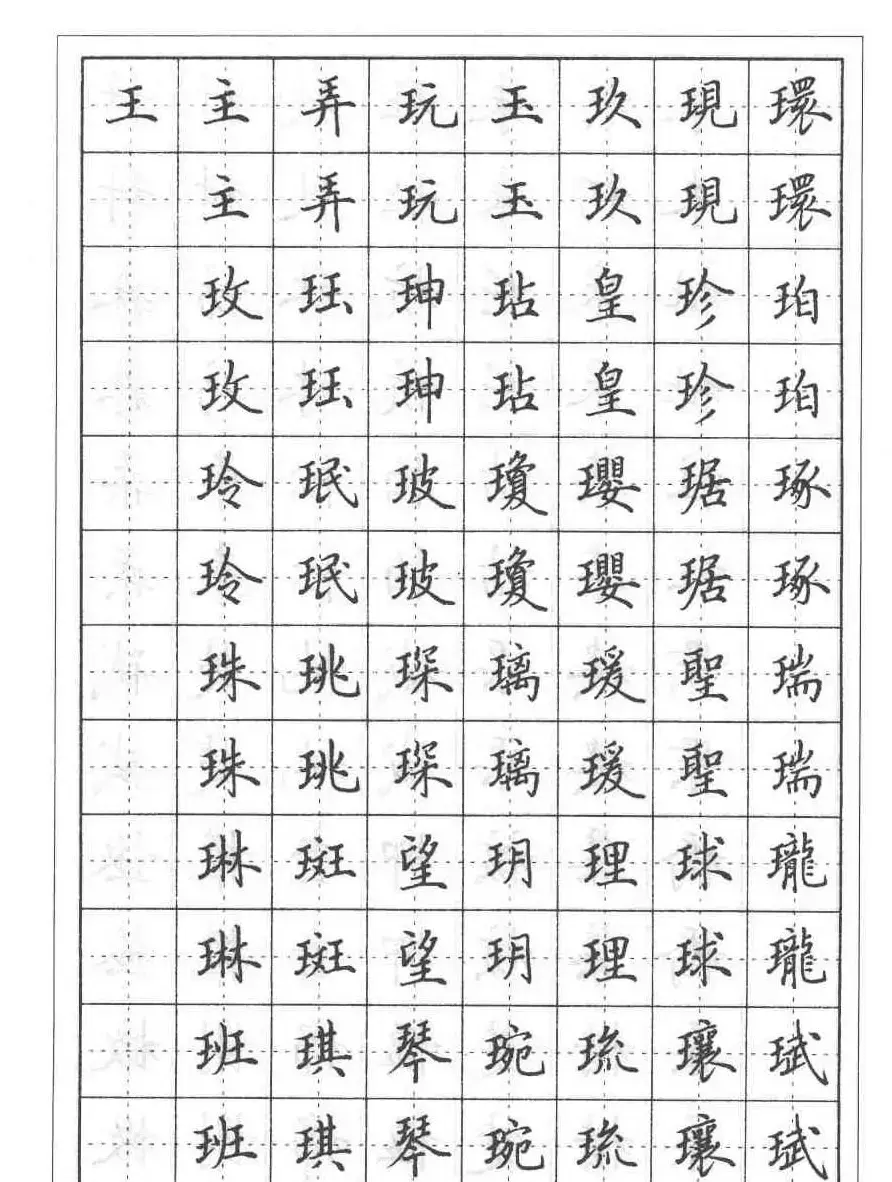 王主弄玩玉玖現環
主弄玩玉玖現環
玫玨珅玷皇珍珀
玫玨珅玷皇珍珀
玲珉玻瓊瓔琚琢
玲珉玻瓊瓔琚琢
珠珧琛璃瑗聖瑞
珠珧琛璃瑗聖瑞
琳斑望玥理球瓏
琳斑望玥理球瓏
班琪琴琬琉瓖珷
班琪琴琬琉瓖珷